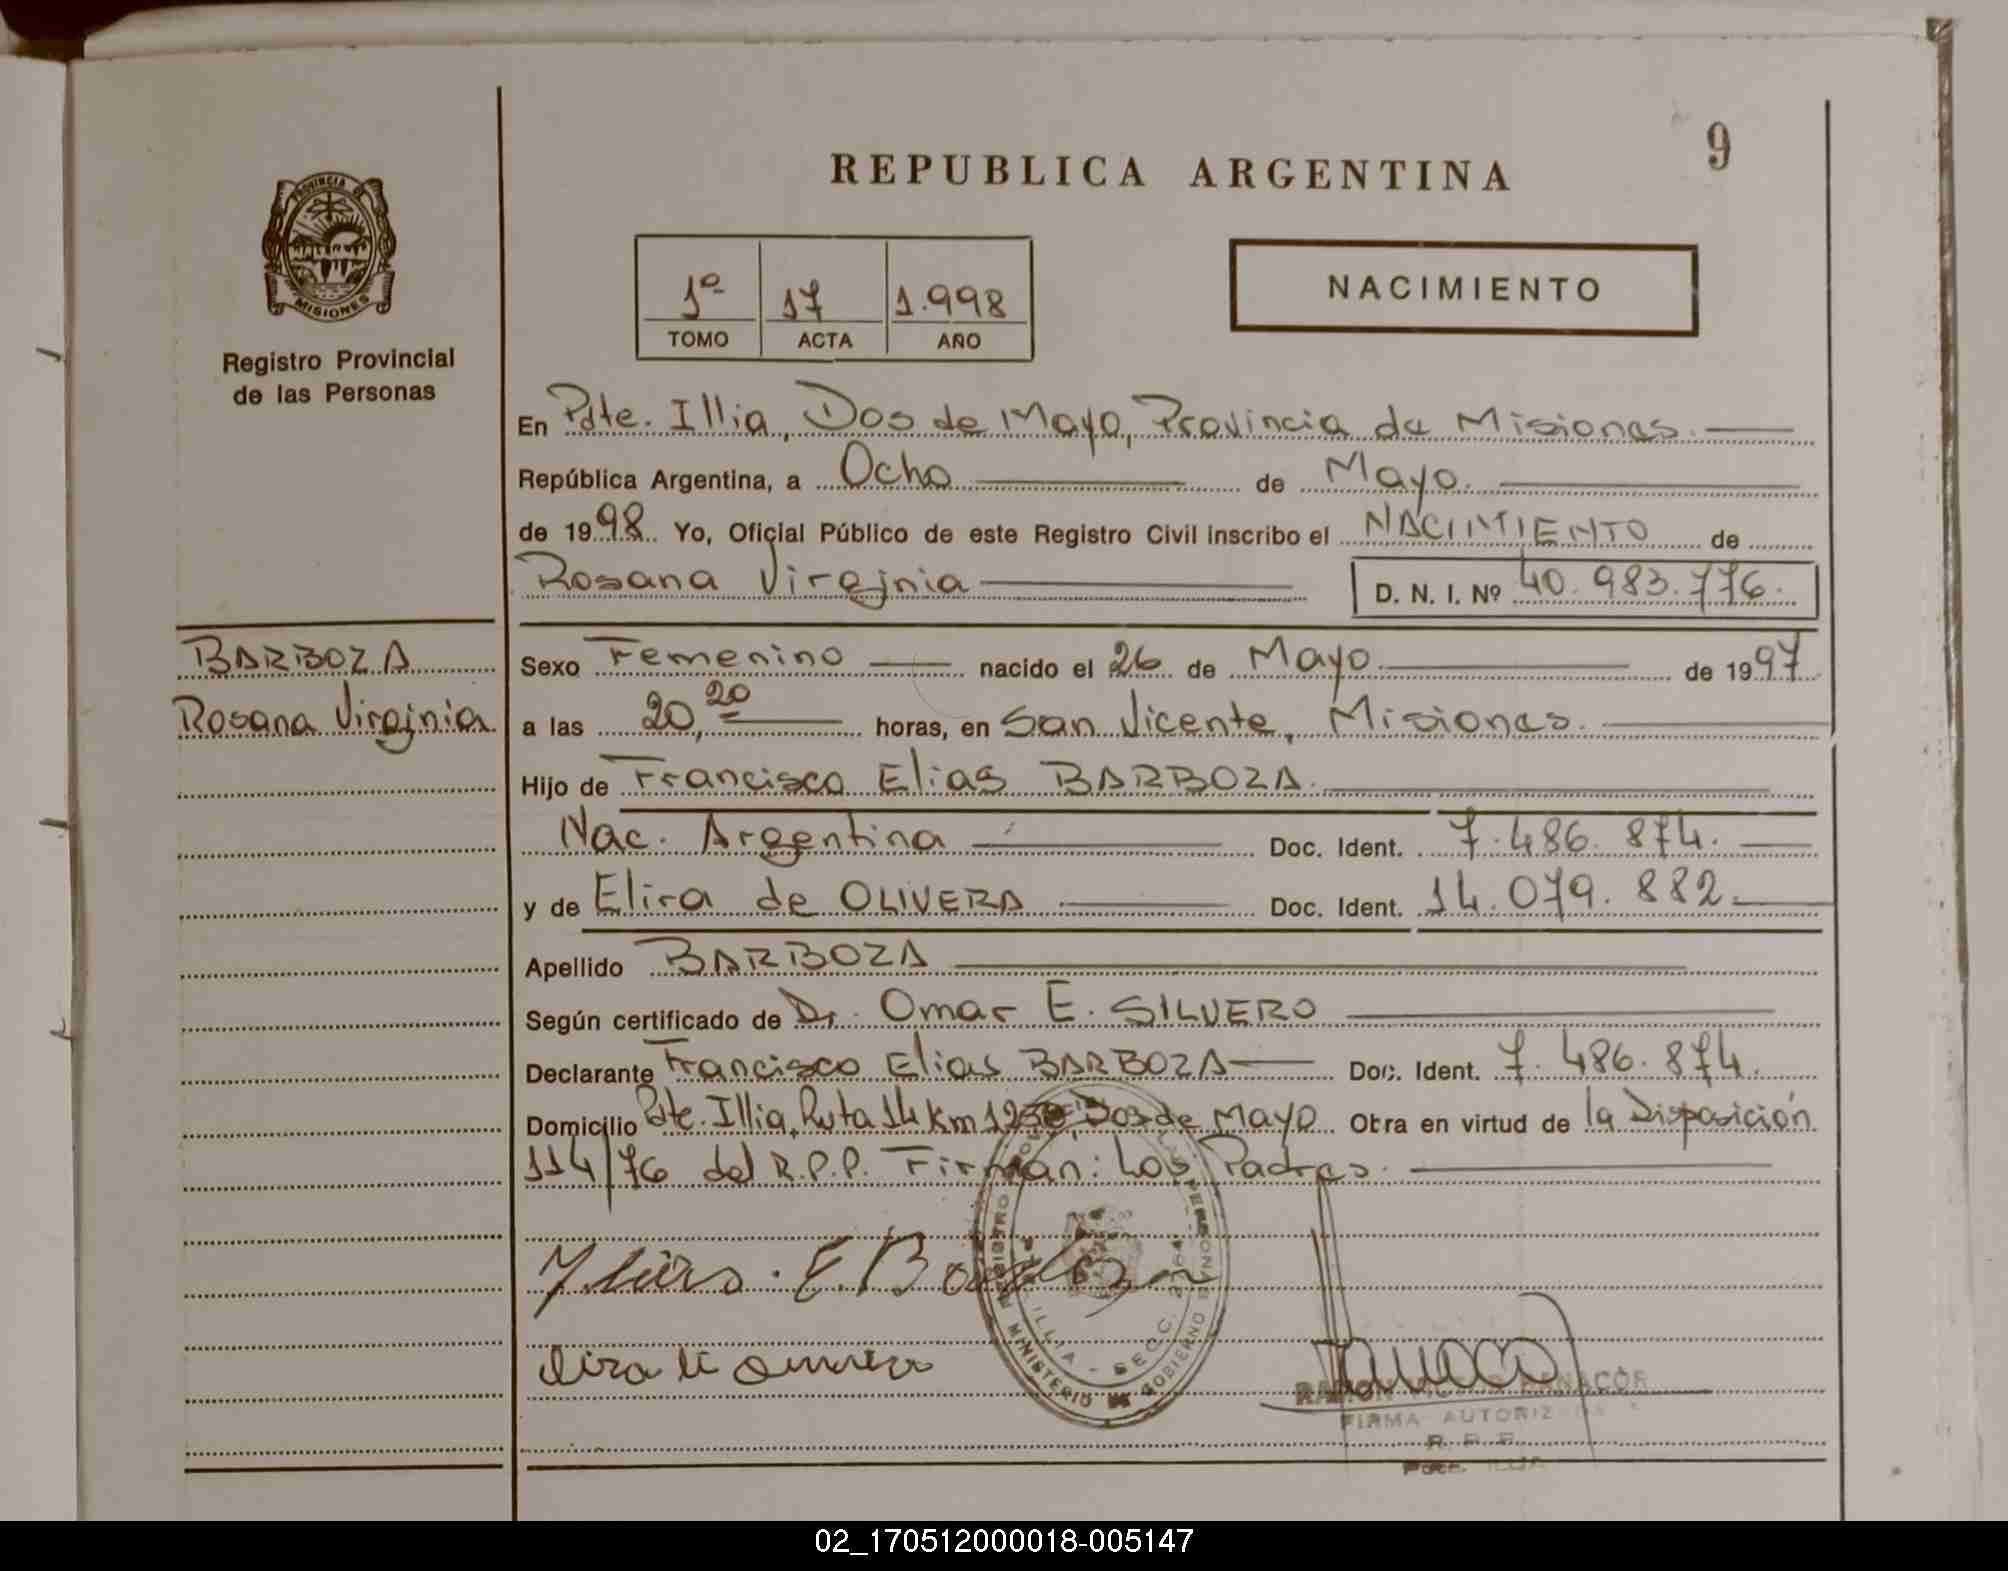 9
REPUBLICA ARGENTINA
PROVINCIA DE
MISIONES
Registro Provincial
de las Personas
1º 17 1.998
TOMO ACTA AÑO
NACIMIENTO
En Pdte. Illia, Dos de Mayo, Provincia de Misiones.
República Argentina, a Ocho de Mayo.
de 1998. Yo, Oficial Público de este Registro Civil inscribo el NACIMIENTO de
Rosana Virginia D. N. I. Nº 40.983.776.
BARBOZA
Rosana Virginia
Sexo Femenino nacido el 26 de Mayo de 1997
a las 20,20 horas, en San Vicente, Misiones.
Hijo de Francisco Elias BARBOZA.
Nac. Argentina Doc. Ident. 7.486.874.
y de Elira de OLIVERA Doc. Ident. 14.079.882
Apellido BARBOZA
Según certificado de Dr. Omar E. SILVERO
Declarante Francisco Elias BARBOZA Doc. Ident. 7.486.874.
Domicilio Pdte. Illia, Ruta 14 Km 1230, Dos de Mayo Obra en virtud de la Disposición
114/76 del R.P.P. Firman: Los Padres.
REGISTRO PERSONAS
ILLIA - SECC.
MINISTERIO DE GOBIERNO
RAMON
FIRMA AUTORIZ
R. P. P.
02_170512000018-005147